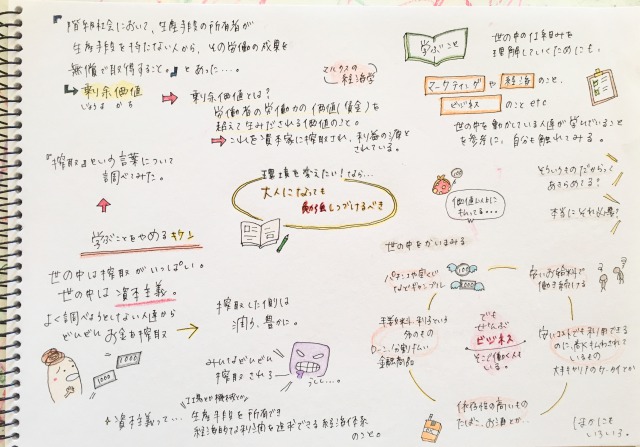 『階級社会において、生産手段の所有者が
生産手段を持たない人から、その労働の成果を
無償で取得すること。』とあった…。
剰余価値
じょうよ かち
マルクスの経済学
剰余価値とは?
労働者の労働力の価値(賃金)を
超えて生みだされる価値のこと。
これを資本家に搾取され、利益の源と
されている。
学ぶこと
世の中の仕組みを
理解していくためにも、
マーケティング や 経済 のこと、
ビジネス のこと etc
世の中を動かしている人達が学んでいることを
参考に、自分も触れてみる。
『搾取』という言葉について
調べてみた。
環境を変えたい!なら…
大人になっても
勉強しつづけるべき
価値以上に
払ってる…
そういうものだからって
あきらめてる?
本当にそれ必要?
学ぶことをやめるキケン
世の中は搾取がいっぱい。
世の中は資本主義。
よく調べようとしない人達から
どんどんお金を搾取
1000
1000
搾取した側は
潤う、豊かに。
みんなどんどん
搾取される
うしし…。
世の中をかいまみる
パチンコや宝くじ
などギャンブル
100
安いお給料で
働き続ける
手数料や、利子という
ローン、分割払い
金融商品
でも
ぜんぶ
ビジネス
そこで働く人も
いる。
安いコストでも利用できる
のに高く払わされて
いるもの
大手キャリアのケータイとか
依存性の高いもの
たばこ、お酒とか…
ほかにも
いろいろ。
資本主義って…
工場とか機械とか
生産手段を所有でき
経済的な利潤を追求できる経済体系
のこと。